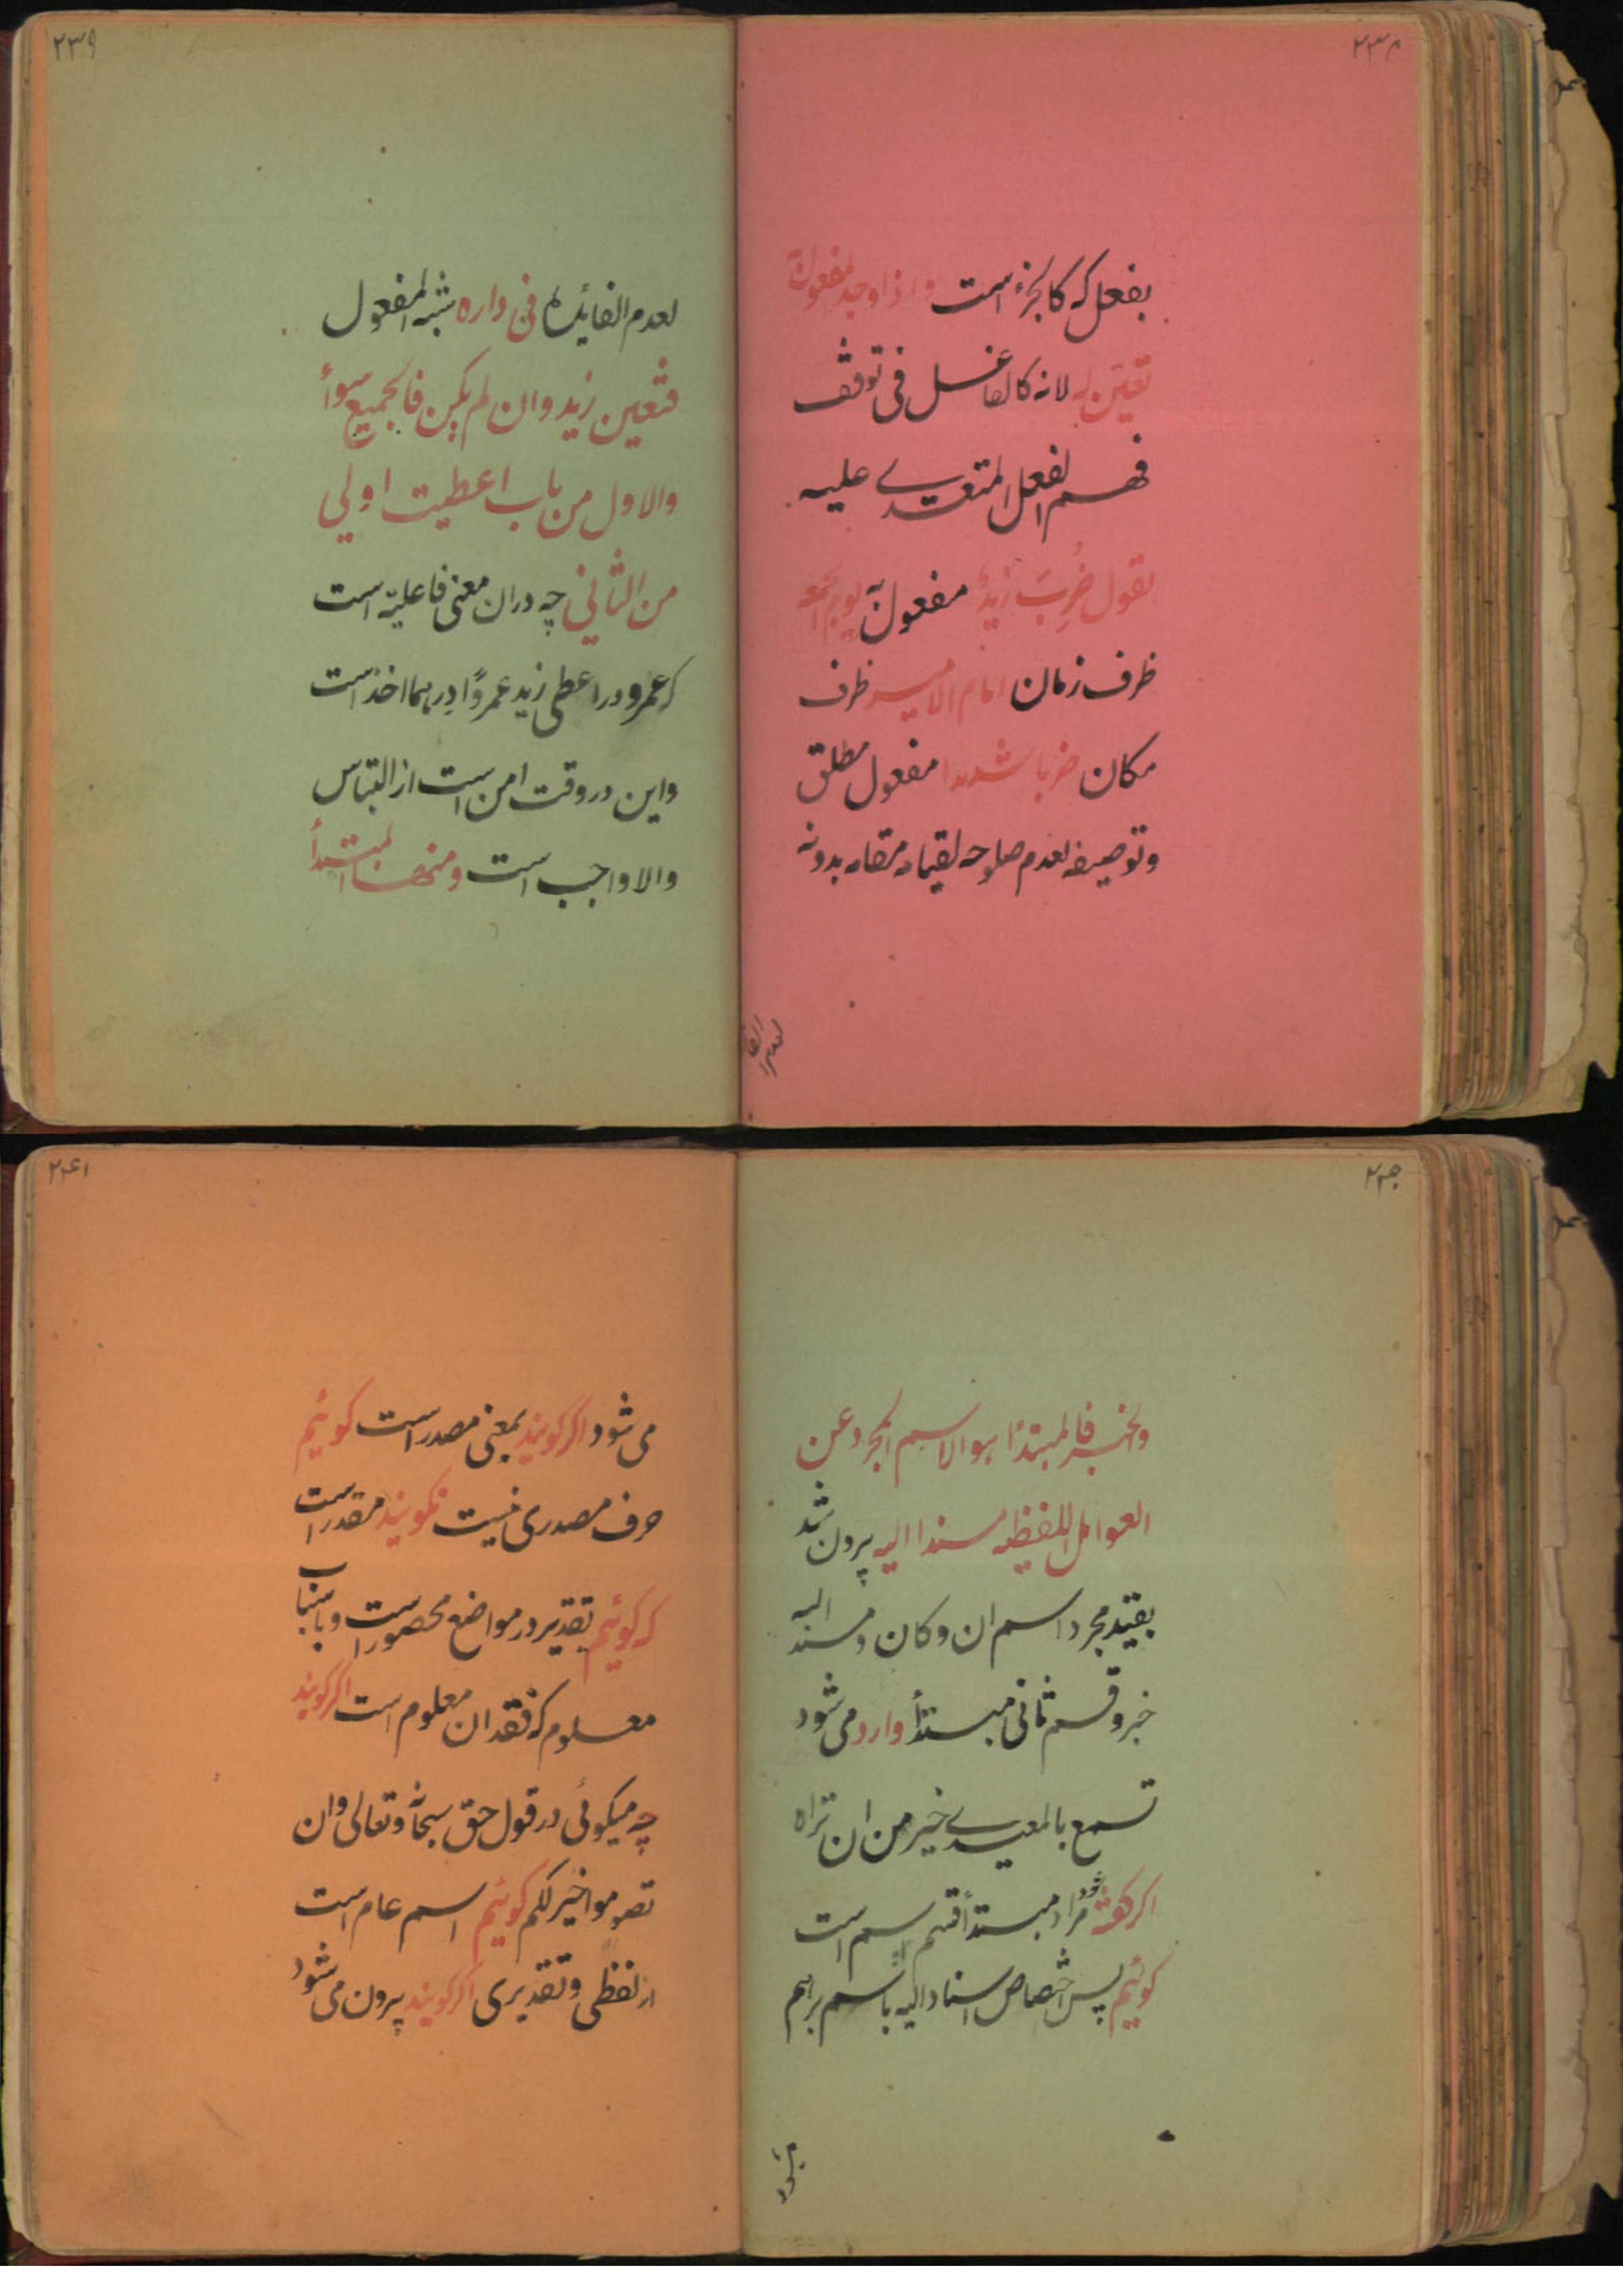 ۲۳۸
بفعل که کالجزء است واذا وجد المفعول به
تعین له لانه کالفاعل فی توقف
فهم الفعل المتعدے علیه
تقول ضُرِبَ زیدٌ مفعول به یوم الجمعه
ظرف زمان امام الامیر ظرف
مکان ضربا شدیدا مفعول مطلق
وتوصیفه لعدم صلوحه لقیامه مقامه بدونه
لعدم الفا
۲۳۹
لعدم الفائده فی داره شبه المفعول
فتعین زید وان لم یکن فالجمیع سوأ
والاول من باب اعطیت اولی
من الثانی چه دران معنی فاعلیّه است
که عمرو در اعطی زید عمروًا درهما اخذ است
واین در وقت امن است از التباس
والا واجب است ومنها المبتدأ
۲۴۰
والخبر فالمبتدأ هو الاسم المجرد عن
العوامل اللفظیه مسندا الیه بیرون شد
بقید مجرد اسم ان وکان و مسند الیه
خبر وقسم ثانی مبتدأ وارد می شود
تسمع بالمعیدے خیر من ان تراه
اکر کفته شود مراد مبتدأ قسم اسم است
کوئیم پس اختصاص اسناد الیه باسم برهم
میشود
۲۴۱
می شود اکر کویند بمعنی مصدر است کوئیم
حرف مصدری نیست نکویند مقدر است
که کوئیم تقدیر در مواضع محصور است وباسباب
معلوم که فقدان معلوم است اکر کویند
چه میکوئی در قول حق سبحانه وتعالی وان
تصوموا خیر لکم کوئیم اسم عام است
از لفظی وتقدیری اکر کویند بیرون می شود